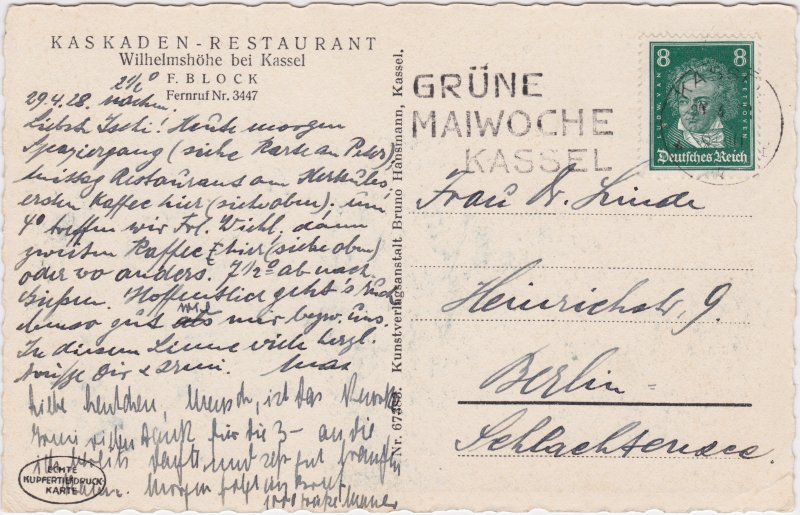 KASKADEN-RESTAURANT
Wilhelmshöhe bei Kassel
F. BLOCK
Fernruf Nr. 3447
29.4.28. nachm. 2½°
Liebste Ischi! Heute morgen
Spaziergang (siehe Karte an Peter),
mittag Restaurant am Herkules,
ersten Kaffee hier (siehe oben). um
4° treffen wir Frl. Wiehl, dann
zweiten Kaffee hier (siehe oben)
oder wo anders. 7½° ab nach
Gießen. Hoffentlich geht's Euch
ebenso gut wie mir bezw. uns.
In diesem Sinne viele herzl.
Grüße Dir &
Max
Liebe Mensch, ist das
vielen Dank für die 3 – an die
ich bereits und sehr gut
Morgen
ECHTE
KUPFERTIEFDRUCK
KARTE
Nr. 67383. Kunstverlagsanstalt Bruno Hansmann, Kassel.
GRÜNE
MAIWOCHE
KASSEL
8 8
LUDWIG VAN BEETHOVEN
Deutsches Reich
Frau Dr. Linde
Heinrichstr. 9.
Berlin-
Schlachtensee